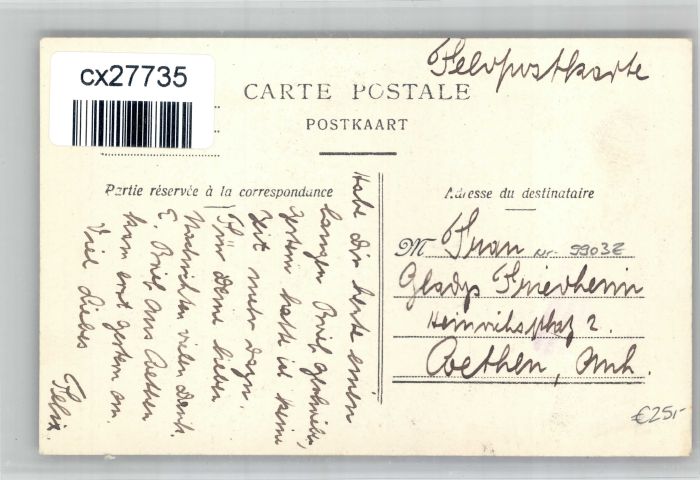 cx27735
Feldpostkarte
CARTE POSTALE
POSTKAART
Partie réservée à la correspondance
Adresse du destinataire
Habe Dir heute einen
langen Brief geschrieben,
gestern hatte ich keine
Zeit mehr dazu.
Für Deine lieben
Nachrichten vielen Dank.
E. Brief aus Coethen
kam erst gestern an.
Viel Liebes
Felix.
M Frau
Nr. 99032
Gladys Friedheim
Heinrichsplatz 2.
Coethen, Anh.
€25,-